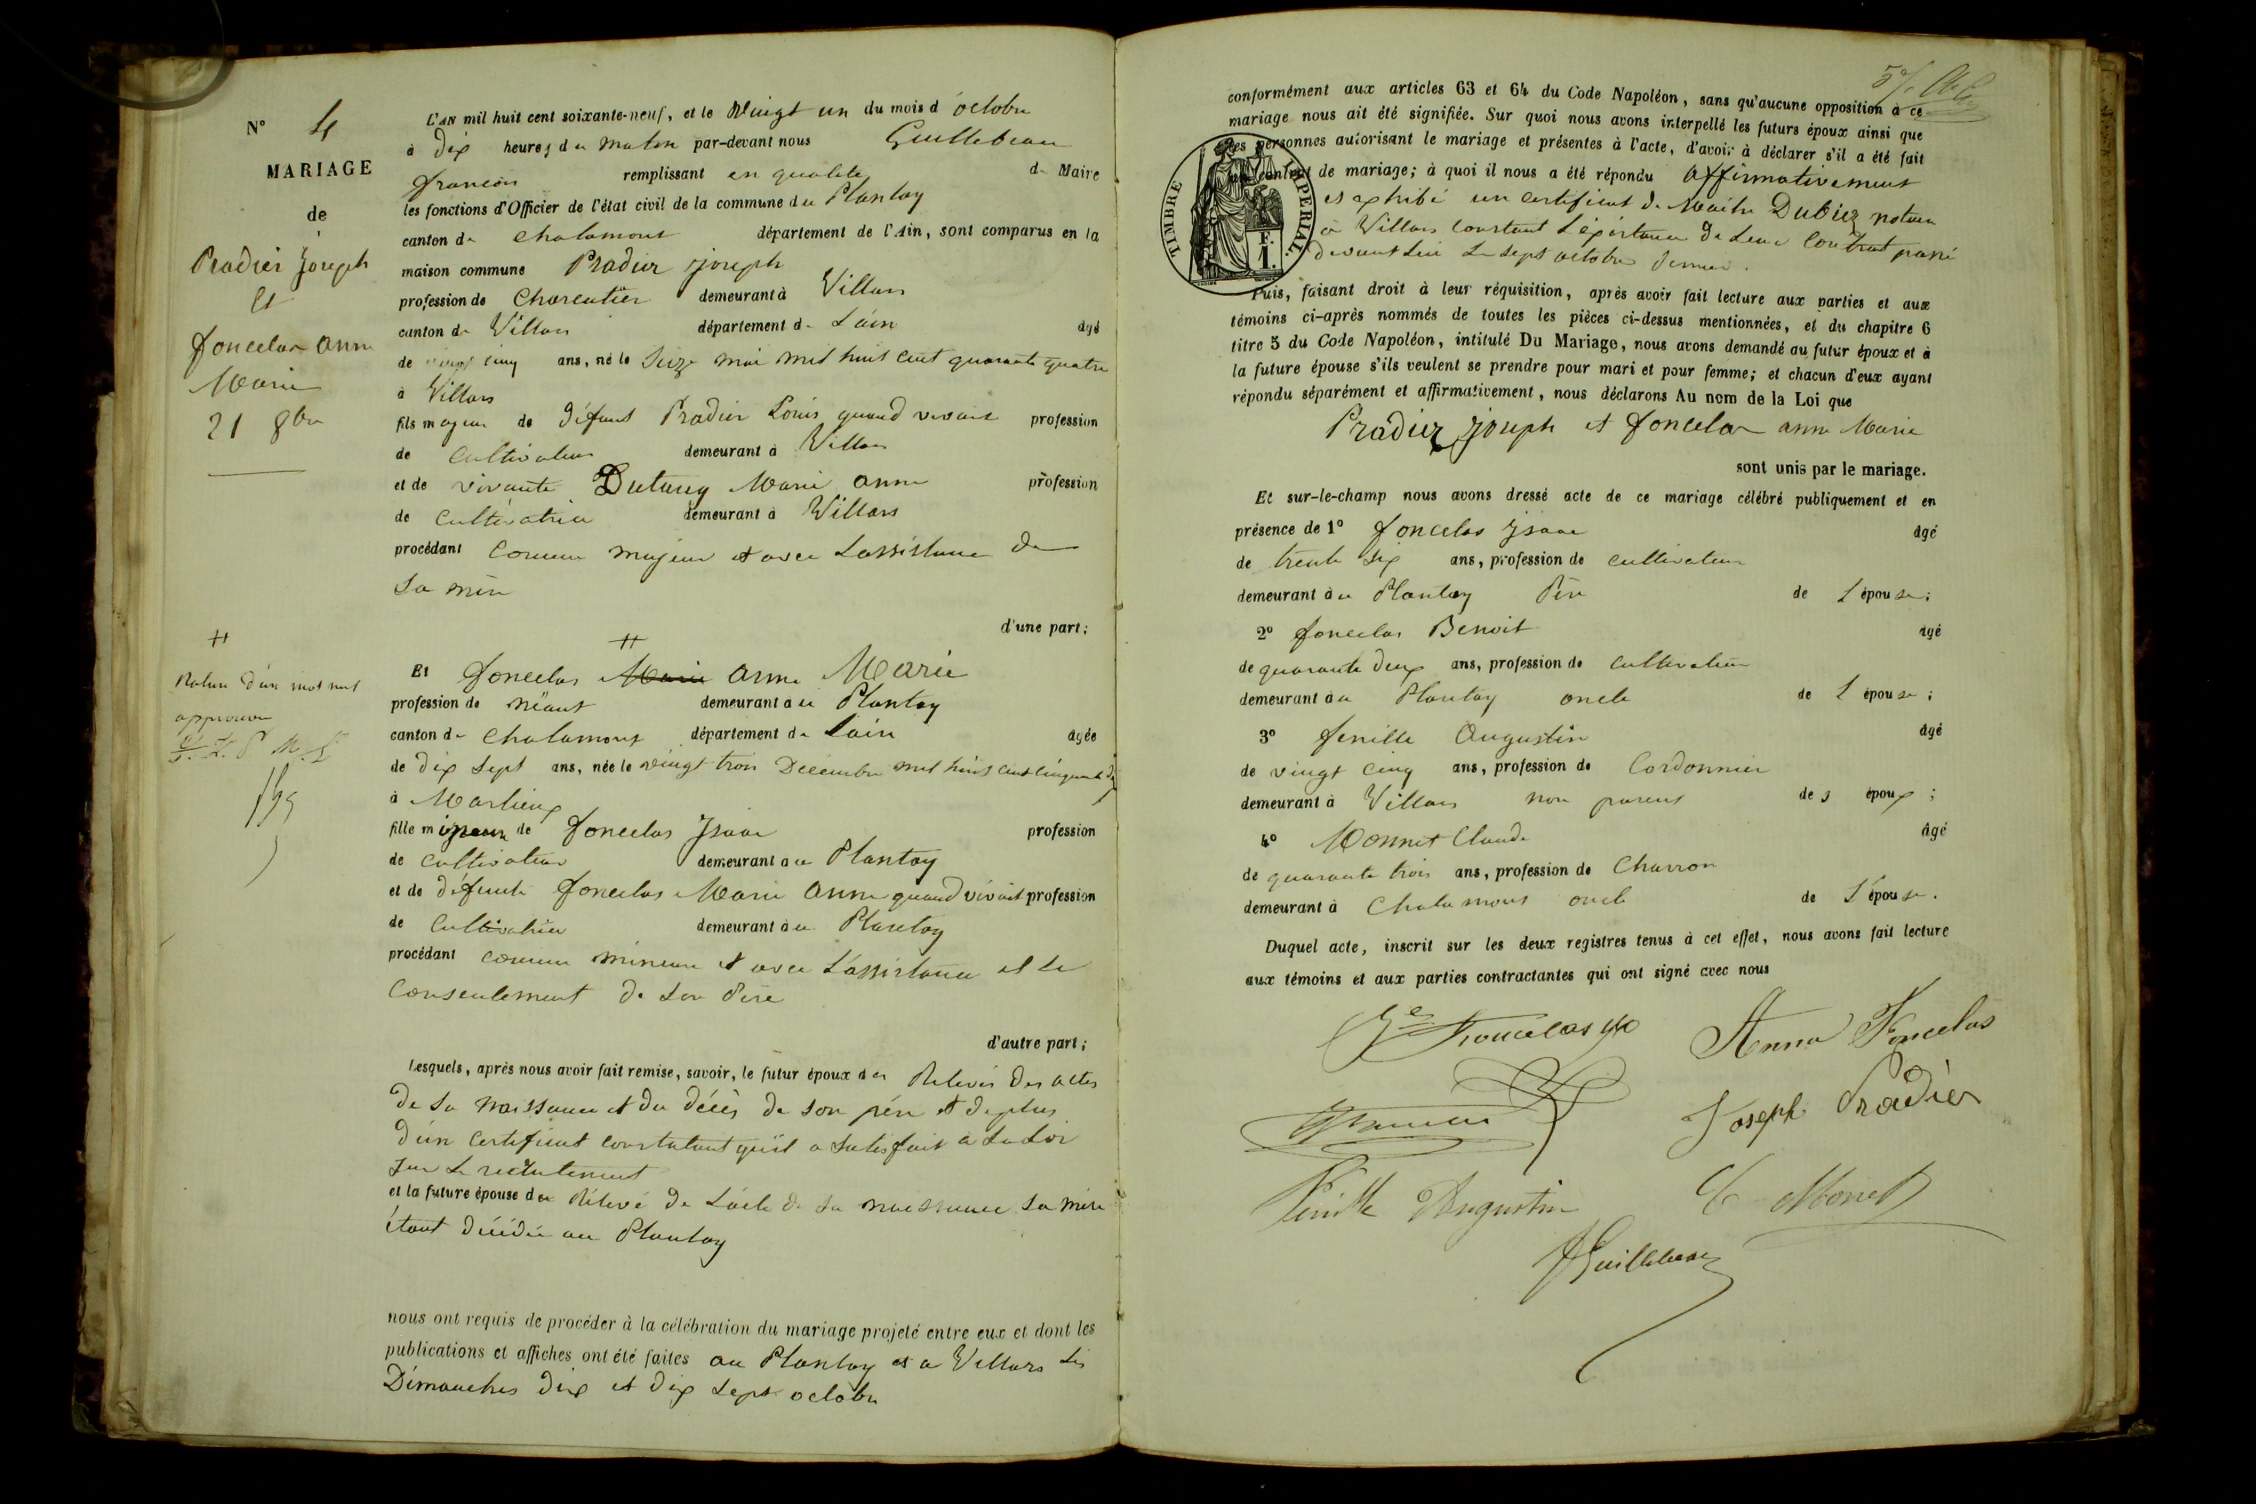 N° 4
MARIAGE
de
Pradier Joseph
Et
Foncelas anne
Marie
21 8bre
L'AN mil huit cent soixante-neuf, et le Vingt un du mois d'octobre
à Dix heures du matin par-devant nous Guillebeau
françois remplissant en qualité de Maire
les fonctions d'Officier de l'état civil de la commune du Plantay
canton de chalamont département de l'Ain, sont comparus en la
maison commune Pradier joseph
profession de Charcutier demeurant à Villars
canton de Villars département de L'ain âgé
de vingt cinq ans, né le Seize mai mil huit cent quarante quatre
à Villars
fils majeur de défunt Pradier Louis quand vivait profession
de Cultivateur demeurant à Villars
et de vivante Dutang Marie anne profession
de Cultivatrice demeurant à Villars
procédant comme majeur et avec Lassistance de
Sa mère
d'une part;
Et foncelas Marie anne Marie
profession de néant demeurant au Plantay
canton de Chalamont département de Lain âgée
de Dix Sept ans, née le vingt trois Decembre mil huit cent cinquante
à Marlieux
fille mineure de foncelas Isaac profession
de cultivateur demeurant au Plantay
et de défunte foncelas Marie Anne quand vivait profession
de Cultivatrice demeurant au Plantay
procédant comme mineure et avec L'assistance et le
Consentement de Son Père
d'autre part;
Rature d'un mot nul
approuvée
Lesquels, après nous avoir fait remise, savoir, le futur époux des Relevés des actes
de Sa Naissance et du décès de son père et de plus
d'un Certificat constatant qu'il a Satisfait à La Loi
Sur le recrutement
et la future épouse du Rélevé de L'acte de Sa naissance Sa mère
étant décédée au Plantay
nous ont requis de procéder à la célébration du mariage projeté entre eux et dont les
publications et affiches ont été faites au Plantay et a Villars les
Dimanches dix et dix Sept octobre
conformément aux articles 63 et 64 du Code Napoléon, sans qu'aucune opposition à ce
mariage nous ait été signifiée. Sur quoi nous avons interpellé les futurs époux ainsi que
les personnes autorisant le mariage et présentes à l'acte, d'avoir à déclarer s'il a été fait
un contrat de mariage; à quoi il nous a été répondu affirmativement
et exhibé un certificat de Maître Dubiez notaire
à Villars constant L'éxistance de Leur Contrat passé
devant Lui Le sept octobre dernier.
TIMBRE IMPERIAL.
F.
1.
Puis, faisant droit à leur réquisition, après avoir fait lecture aux parties et aux
témoins ci-après nommés de toutes les pièces ci-dessus mentionnées, et du chapitre 6
titre 5 du Code Napoléon, intitulé Du Mariage, nous avons demandé au futur époux et à
la future épouse s'ils veulent se prendre pour mari et pour femme; et chacun d'eux ayant
répondu séparément et affirmativement, nous déclarons Au nom de la Loi que
Pradier joseph et foncelas anne Marie
sont unis par le mariage.
Et sur-le-champ nous avons dressé acte de ce mariage célébré publiquement et en
présence de 1° foncelas Isaac âgé
de trente Six ans, profession de cultivateur
demeurant au Plantay Père de L'épouse;
2° foncelas Benoit âgé
de quarante deux ans, profession de cultivateur
demeurant au Plantay oncle de L'épouse;
3° fenille Augustin âgé
de vingt cinq ans, profession de Cordonnier
demeurant à Villars non parent des époux;
4° Monnet Claude âgé
de quarante trois ans, profession de Charron
demeurant à Chalamont oncle de L'épouse.
Duquel acte, inscrit sur les deux registres tenus à cet effet, nous avons fait lecture
aux témoins et aux parties contractantes qui ont signé avec nous
Foncelas Anna Foncelas
Joseph Pradier
Fenille Augustin C Monet
Guillebeau